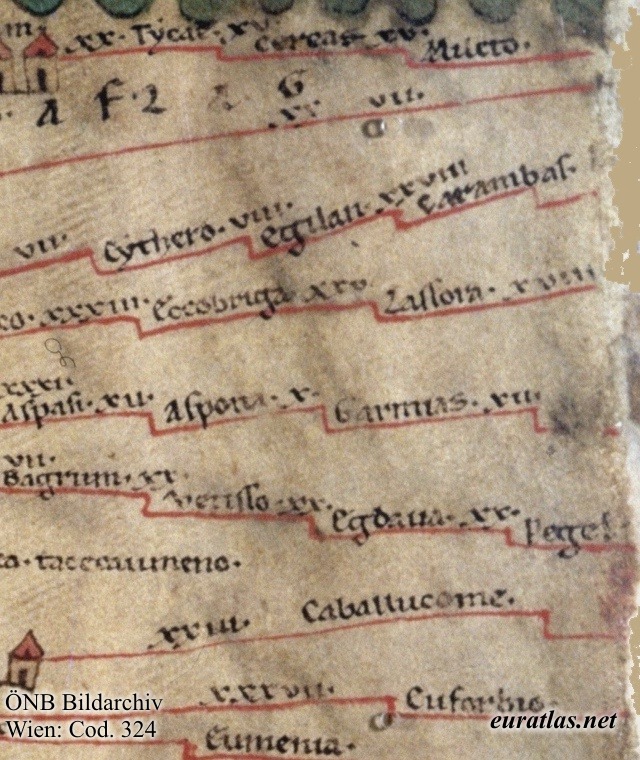 m
xx. Tycae xv. cereas xv. Mileto.
A F. 2 G
xx vii.
vii. Cythero. viii. egilan. xxviii carambas.
co. xxxiii. Eccobriga xxv Lassora. xviii
xxxi.
Aspasi. xii. Aspona. x. Garmias. xii.
vii.
Bagrum. xx. Vetisso. xx. Egdaua. xx. Pege
ca. taceaumeno.
xxiii. Caballucome.
xxxvii. Euforbio
Eumenia.
ÖNB Bildarchiv
Wien: Cod. 324
euratlas.net